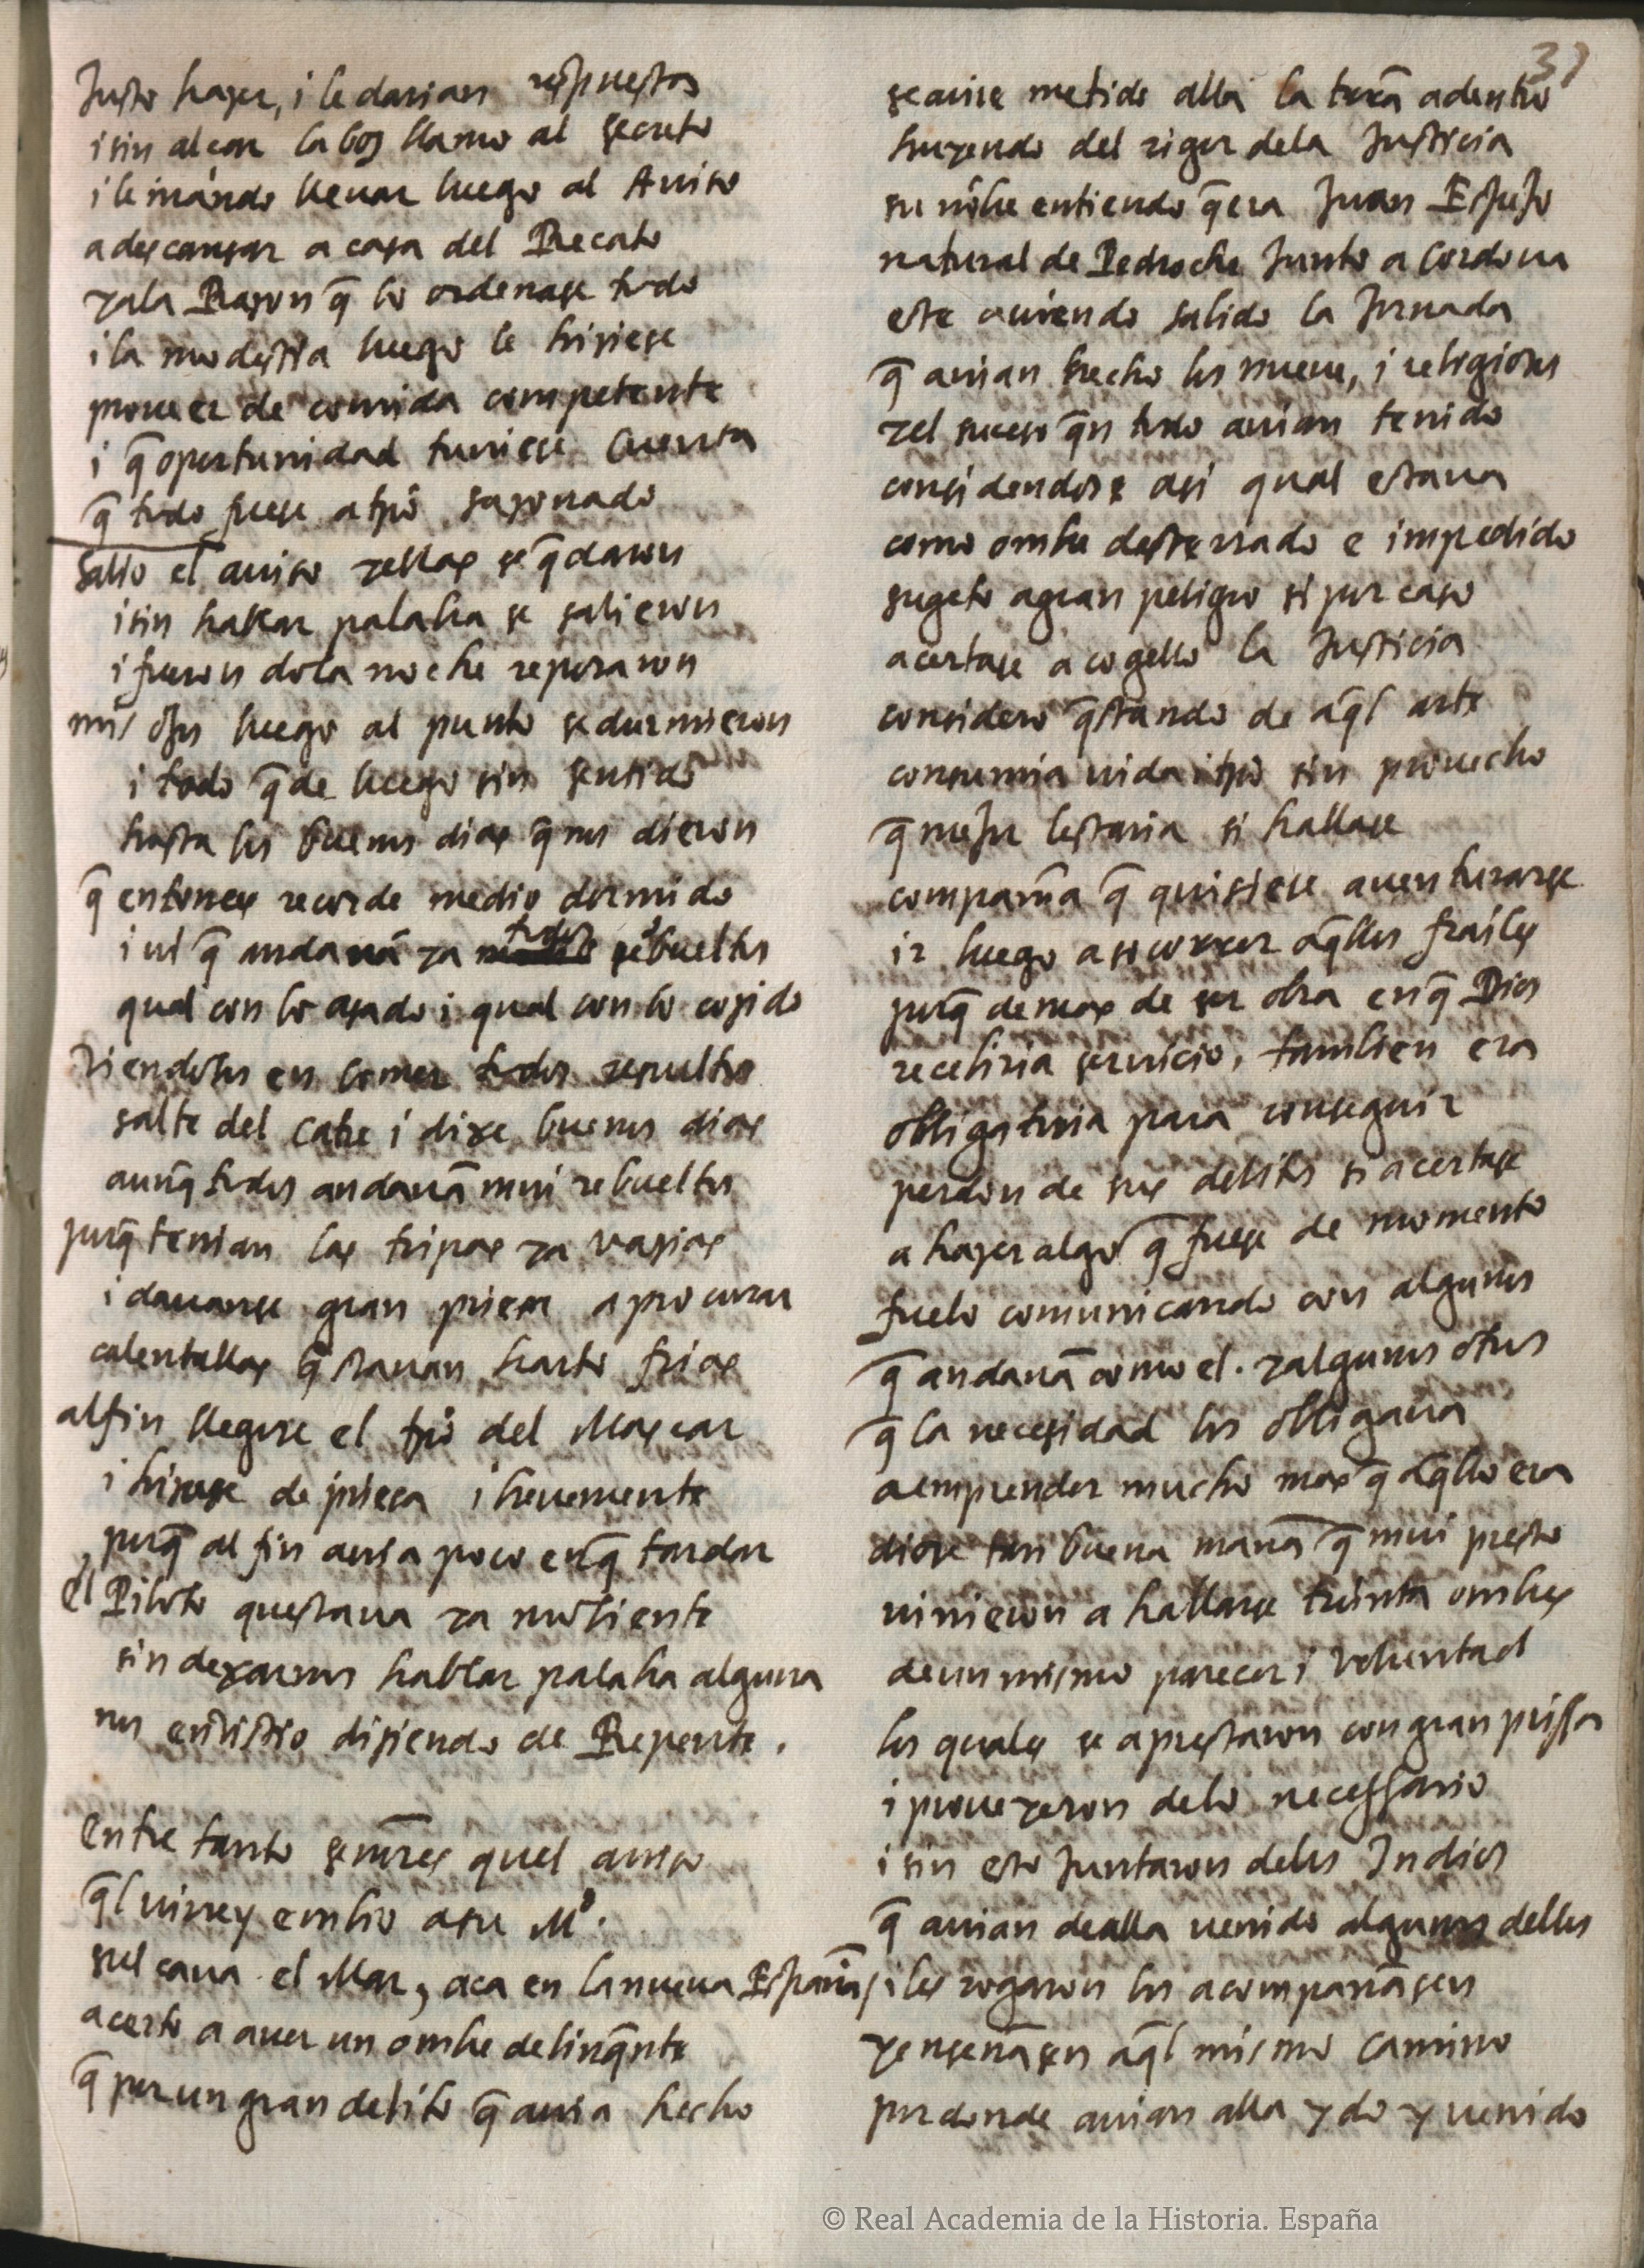 37
Justo hazer, i le darian respuestas
i sin alçar la boz llamo al secreto
i le mãndo lleuar luego al Auiso
a descansar a casa del Recato
y a la Razon q̃ lo ordenase todo
i la modestia luego le hiziese
proueer de comida competente
i q̃ oportunidad tuuiese cuenta
q̃ todo fuese a tpõ sazonado
Salio el auiso y ellas se q̃daron
i sin hablar palabra se salieron
i fueron do la noche reposaron
mis ojos luego al punto se durmieron
i todo q̃de luego sin sentido
hasta los buenos dias q̃ nos dieron
q̃ entonces recorde medio dormido
i ui q̃ andauã ya todos rebueltos
qual con lo asado i qual con lo cozido
Viendolos en comer todos resueltos
salte del catre i dixe buenos dias
aunq̃ todos andauã mui rebueltos
porq̃ tenian las tripas ya vazias
i dauanse gran priesa a procurar
calentallas q̃stauan harto frias
al fin llegose el tpõ del Mascar
i hizose de priesa i breuemente
porq̃ al fin auia poco en q̃ tardar
el Piloto questaua ya mouiente
sin dexarnos hablar palabra alguna
nos enuistio diziendo de Repente.
Entre tanto señores quel auiso
q̃l uirrey embio a su Mᵈ.
sulcaua el Mar, aca en la nueua España
acerto a auer un ombre delinq̃nte
q̃ por un gran delito q̃ auia hecho
se auie metido alla la terrã adentro
huyendo del rigor de la Justicia
su nõbre entiendo q̃ era Juan Espejo
natural de Pedroche Junto a Cordoua
este auiendo sabido la Jornada
q̃ auian hecho los nueue, i religiosos
y el suceso q̃n todo auian tenido
considerandose asi qual estaua
como ombre desterrado e impedido
sugeto a gran peligro si por caso
acertase a cogello la Justicia
considero q̃stando de aq̃l arte
consumia uida i tpõ sin prouecho
q̃ mejor lestaria si hallase
compañia q̃ quisiese auenturarse
ir luego a socorrer aq̃llos frailes
porq̃ demas de ser obra en q̃ Dios
recebiria seruicio, tambien era
obligatoria para conseguir
perdon de sus delitos si acertase
a hazer algo q̃ fuese de momento
fuelo comunicando con algunos
q̃ andauã como el. y algunos otros
q̃ la necesidad los obligaua
a emprender mucho mas q̃ aq̃llo era
diose tan buena mañã q̃ mui presto
uinieron a hallarse treinta ombres
de un mismo parecer i voluntad
los quales se aprestaron con gran prissa
i proueyeron de lo necessario
i sin esto Juntaron de los Indios
q̃ auian de alla uenido algunos dellos
i les rogaron los acompañasen
y enseñasen aq̃l mismo camino
por donde auian alla ydo y uenido
© Real Academia de la Historia. España